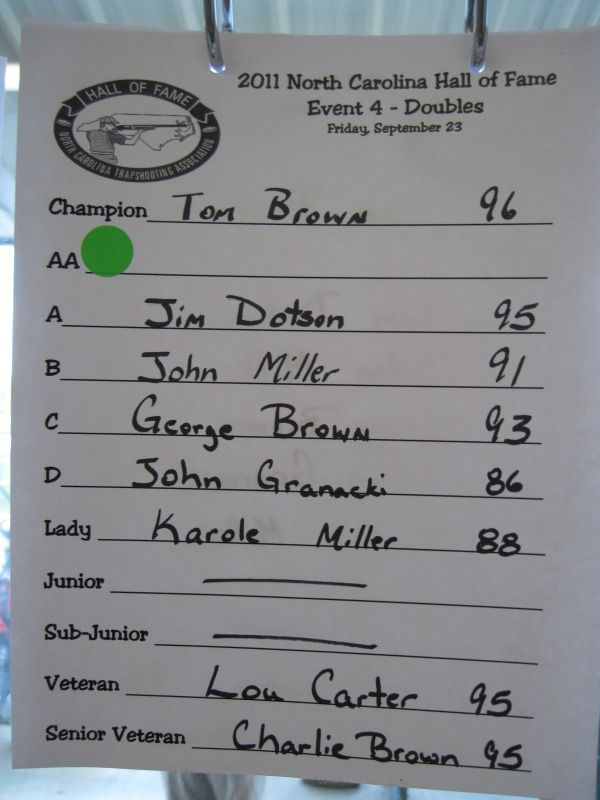 HALL OF FAME
NORTH CAROLINA TRAPSHOOTING ASSOCIATION
2011 North Carolina Hall of Fame
Event 4 - Doubles
Friday, September 23
Champion Tom Brown 96
AA
A Jim Dotson 95
B John Miller 91
C George Brown 93
D John Granacki 86
Lady Karole Miller 88
Junior
Sub-Junior
Veteran Lou Carter 95
Senior Veteran Charlie Brown 95